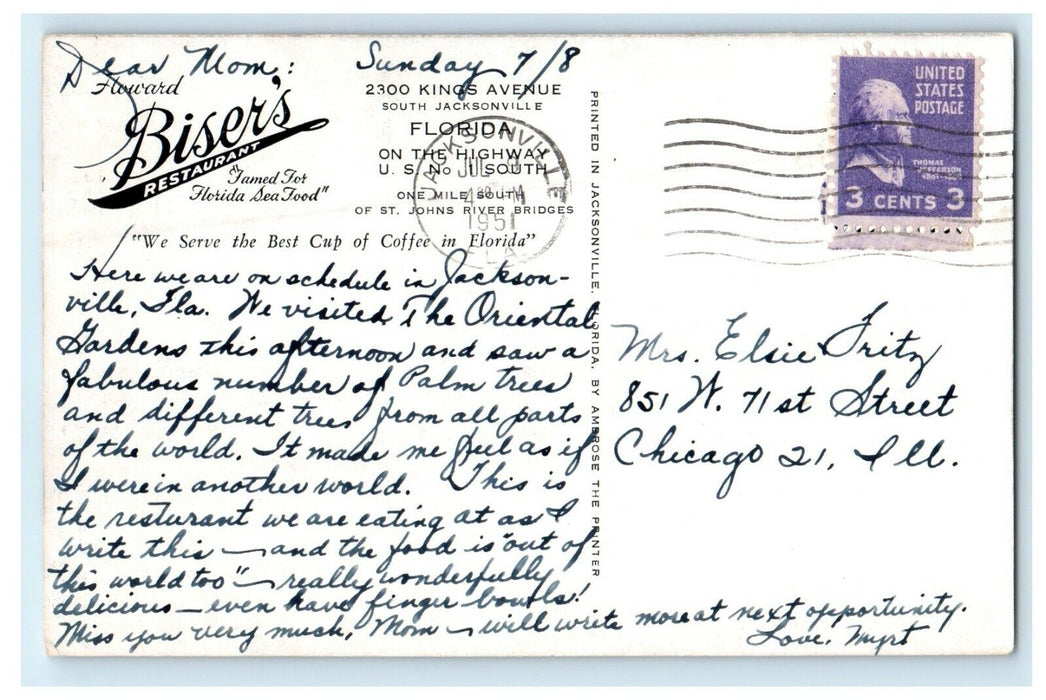 Dear Mom: Sunday 7/8
Howard
Biser's
RESTAURANT
"Famed For
Florida Sea Food"
2300 KINGS AVENUE
SOUTH JACKSONVILLE
FLORIDA
ON THE HIGHWAY
U. S. No 1 SOUTH
ONE MILE SOUTH
OF ST. JOHNS RIVER BRIDGES
"We Serve the Best Cup of Coffee in Florida"
JACKSONVILLE
JUL
4 30 PM
1951
FLA.
UNITED
STATES
POSTAGE
THOMAS
JEFFERSON
3 CENTS 3
Here we are on schedule in Jackson-
ville, Fla. We visited The Oriental
Gardens this afternoon and saw a
fabulous number of Palm trees
and different trees from all parts
of the world. It made me feel as if
I were in another world. This is
the resturant we are eating at as I
write this — and the food is "out of
this world too" — really wonderfully
delicious — even have finger bowls!
Miss you very much, Mom — will write more at next opportunity.
Love, Myrt
PRINTED IN JACKSONVILLE, FLORIDA, BY AMBROSE THE PRINTER
Mrs. Elsie Fritz
851 W. 71st Street
Chicago 21, Ill.